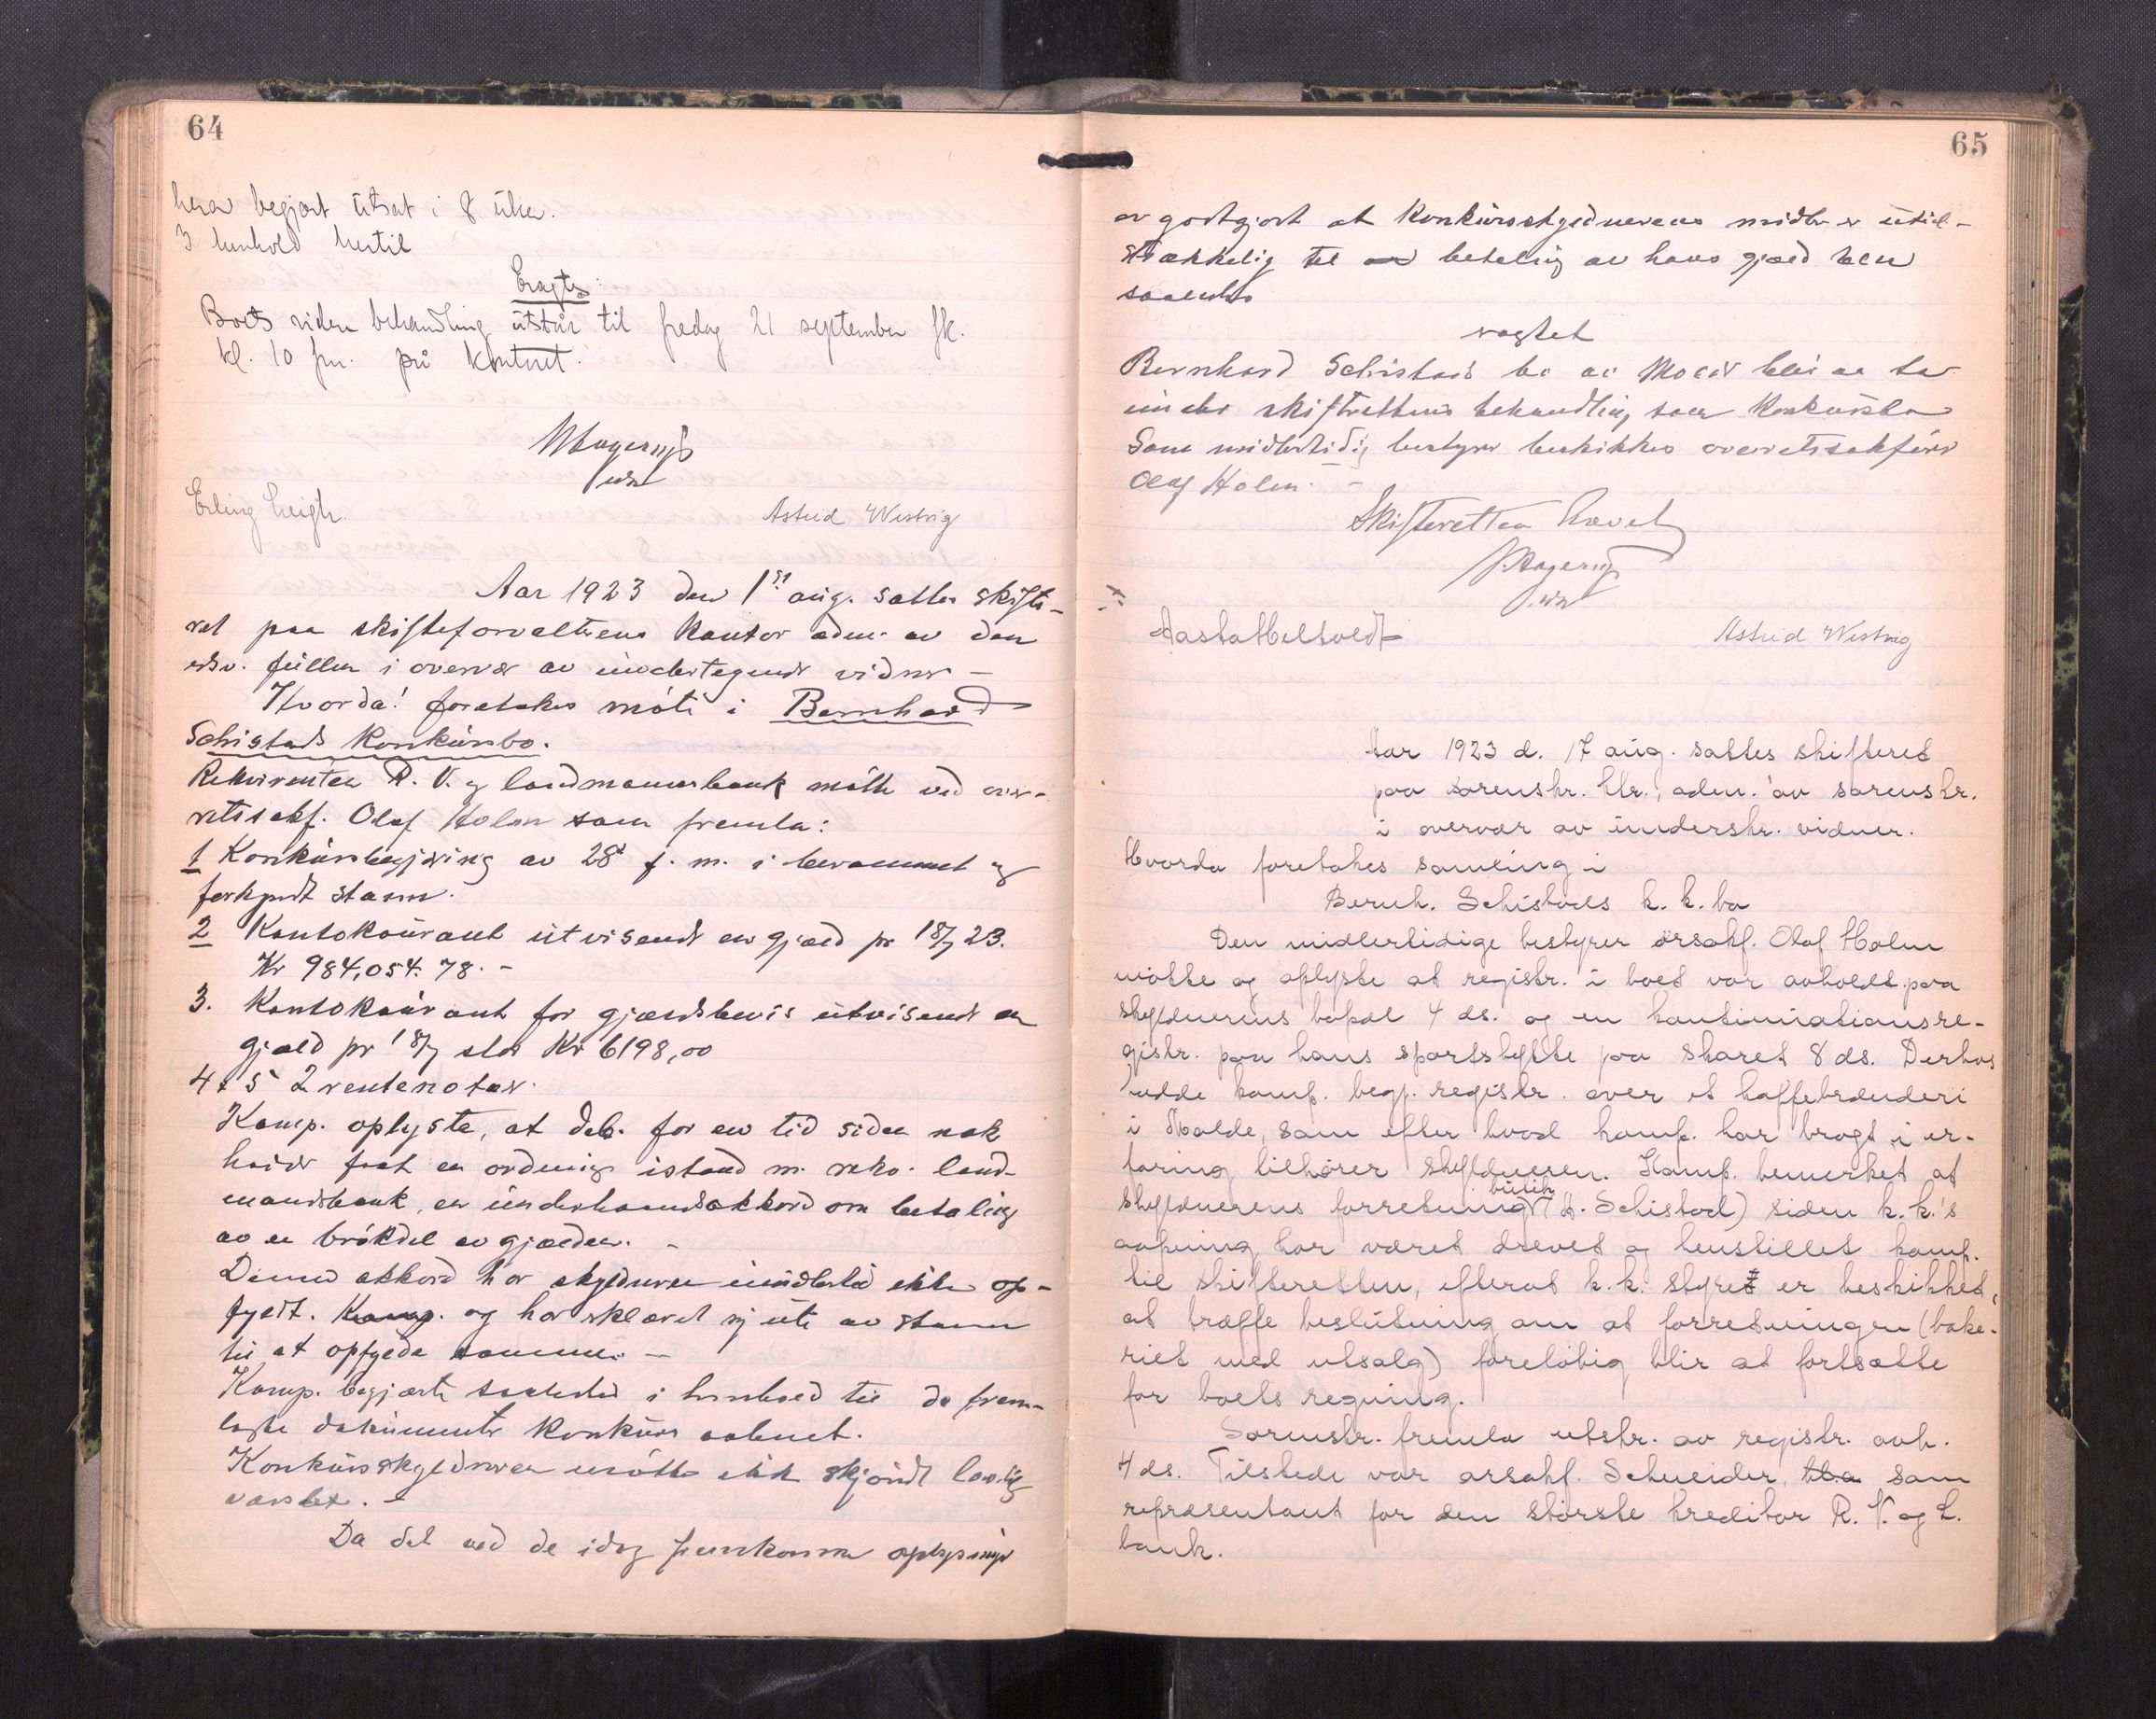 64
herav begjært utsat i 8 uker.
I henhold hertil
Eragtes:
Boets videre behandling utstår til fredag 21 september fk.
kl. 10 fm. på kontoret.
Hagerup
Erling Leigh.
Astrid Westvig
Aar 1923 den 1st aug. sattes skifte-
ret paa skifteforvalterens kontor adm. av den
edsv. fullm i overvær av undertegnede vidner –
Hvorda! foretokes møte i Bernhard
Schistads konkursbo.
Rekvirenten R. V. og landmannsbank møtte ved over-
retssakf. Olaf Holm som fremla:
1 Konkursbegjæring av 28d f. m. i berammet og
forkyndt stann.
2 Kontokourant utvisende en gjæld pr 18/7 23.
Kr 984,054.78. –
3. Kontokourant for gjældsbevis utvisende en
gjæld pr 18/7 stor Kr 6198,00
4 & 5 2 rentenotaer.
Komp. oplyste, at deb. for en tid siden nok
hadde faat en ordning istand m. rekv. land-
mandsbank, en underhaandsakkord om betaling
av en brøkdel av gjælden. –
Denne akkord har skyldneren imidlertid ikke op-
fyldt. Komp. og har erklæret sig ute av stann
til at opfylde samme. –
Komp. begjærte saaledes i henhold til de frem-
lagte dokumenter konkurs aabnet.
Konkursskyldneren møtte ikke skjøndt lovlig
varslet. –
Da det ved de idag fremkomne oplysninger
65
er godtgjort at konkursskyldnerens midler er util-
strækkelig til betaling av hans gjæld blev
saaledes
vagtet
Bernhard Schistads bo av Molde blir at ta
under skifterettens behandling som konkursbo
Som midlertidig bestyrer beskikkes overretssakfører
Olaf Holm. –
Skifteretten hævet
Hagerup
Aasta Heltvedt
Astrid Westvig
Aar 1923 d. 17 aug. sattes skifteret
paa sorenskr. ktr., adm. av sorenskr.
i overvær av underskr. vidner.
Hvorda foretokes samling i
Bernh. Schistads k. k. bo
Den midlertidige bestyrer orsakf. Olaf Holm
møtte og oplyste at registr. i boet var avholdt paa
skyldnerens bopæl 4 ds. og en kontinuationsre-
gistr. paa hans sportshytte paa Skaret 8 ds. Derhos
hadde komp. begj. registr. over et kaffebrænderi
i Molde, som efter hvad komp. har bragt i er-
faring, tilhører skyldneren. Komp. bemerket at
skyldnerens forretning butik (H. Schistad) siden k. k.'s
aapning, har været drevet og henstillet komp.
til skifteretten, efterat k. k. styret er beskikket,
at træffe beslutning om at forretningen (bake-
riet med utsalg) foreløbig blir at fortsætte
for boets regning.
Sorenskr. fremla utskr. av registr. avh.
4 ds. Tilstede var orsakf. Schneider, som
repræsentant for den største kreditor R. V. og L.
bank.